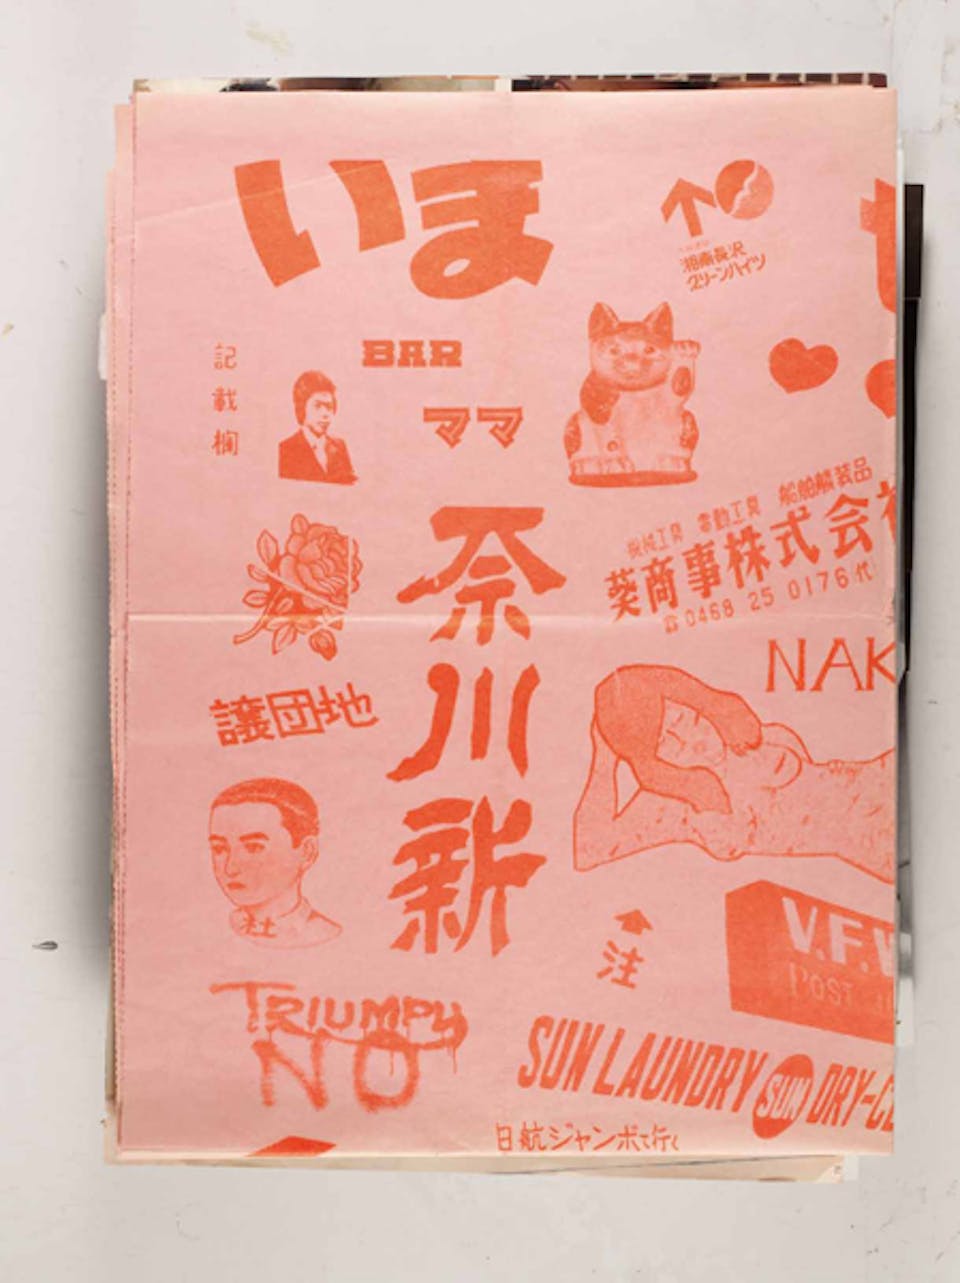 いま
湘南長沢
グリーンハイツ
記載欄
BAR
ママ
奈川新
機械工具 電動工具 船舶艤装品
葵商事株式会社
☎0468 25 0176代
NAK
譲団地
社
V.F.W
POST
注
TRIUMPY
NO
SUN LAUNDRY SUN DRY-CL
日航ジャンボで行く